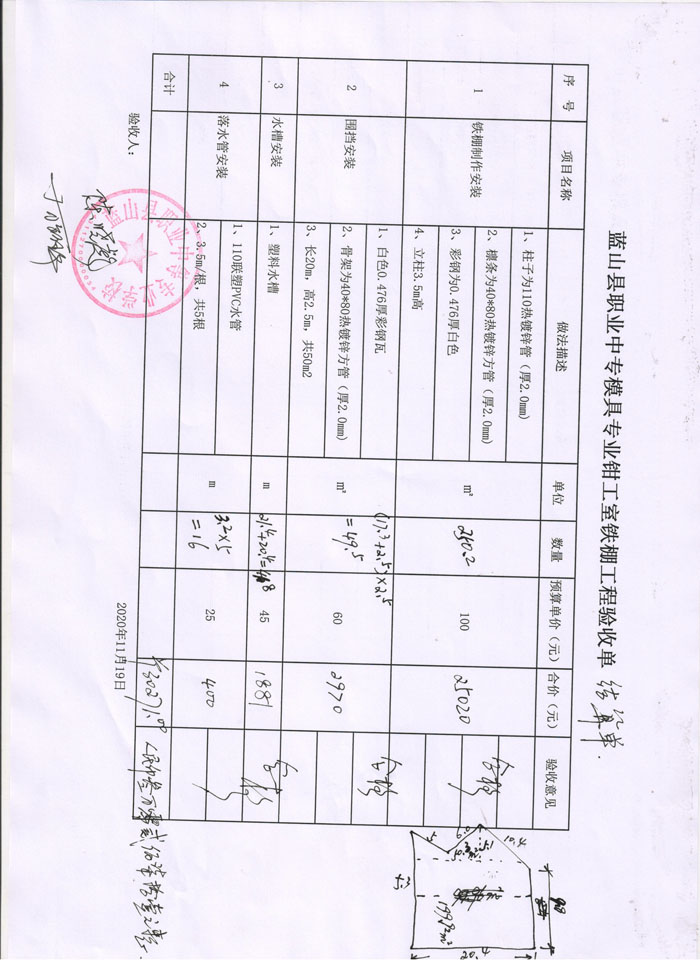 蓝山县职业中专模具专业钳工室铁棚工程验收单 结算单
序 号 项目名称 做法描述 单位 数量 预算单价（元） 合价（元） 验收意见
1 铁棚制作安装 m² 250.2 100 25020 合格
1、柱子为110热镀锌管（厚2.0mm）
2、檩条为40*80热镀锌方管（厚2.0mm）
3、彩钢为0.476厚白色
4、立柱3.5m高
2 围挡安装 m² (17.3+2.5)×2.5 60 2970 合格
=49.5
1、白色0.476厚彩钢瓦
2、骨架为40*80热镀锌方管（厚2.0mm）
3、长20m，高2.5m，共50m2
3 水槽安装 1、塑料水槽 m 45 1881 合格
4 落水管安装 m 3.2×5 25 400
=16
1、110联塑PVC水管
2、3.5m/根，共5根
合计 ¥30271.00 人民币叁万零贰佰柒拾壹元整
验收人：
2020年11月19日
蓝山县职业中等专业学校
10.4
20.4